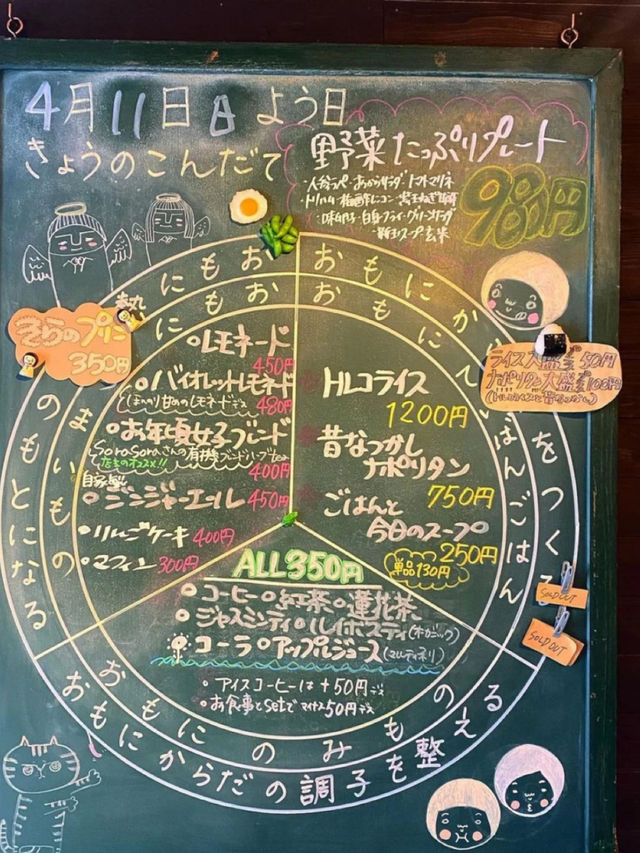 4月11日日よう日
きょうのこんだて
野菜たっぷりプレート
980円
きらのプリン
350円
レモネード
450円
バイオレットレモネード
ほんのり甘めのレモネードデス
480円
お年頃女子ブレンド
SoroSoroさんの有機ブレンドハーブtea
店主のオススメ!!
400円
自家製
ジンジャーエール 450円
りんごケーキ 400円
マフィン 300円
トルコライス
1200円
昔なつかし
ナポリタン
750円
ごはんと
今日のスープ
250円
単品130円
ライス大盛 50円
ナポリタン大盛 100円
ALL350円
コーヒー 紅茶 蓮花茶
ジャスミンティ ルイボスティ(オーガニック)
コーラ アップルジュース(マルティネリ)
アイスコーヒーは+50円デス
お食事とsetでマイナス50円デス
おもにごはんごはん
おもにのみもの
おもにあまいもの
おもにからだをつくる
おもにからだの調子を整える
おもに熱のもとになる
SOLD OUT
SOLD OUT